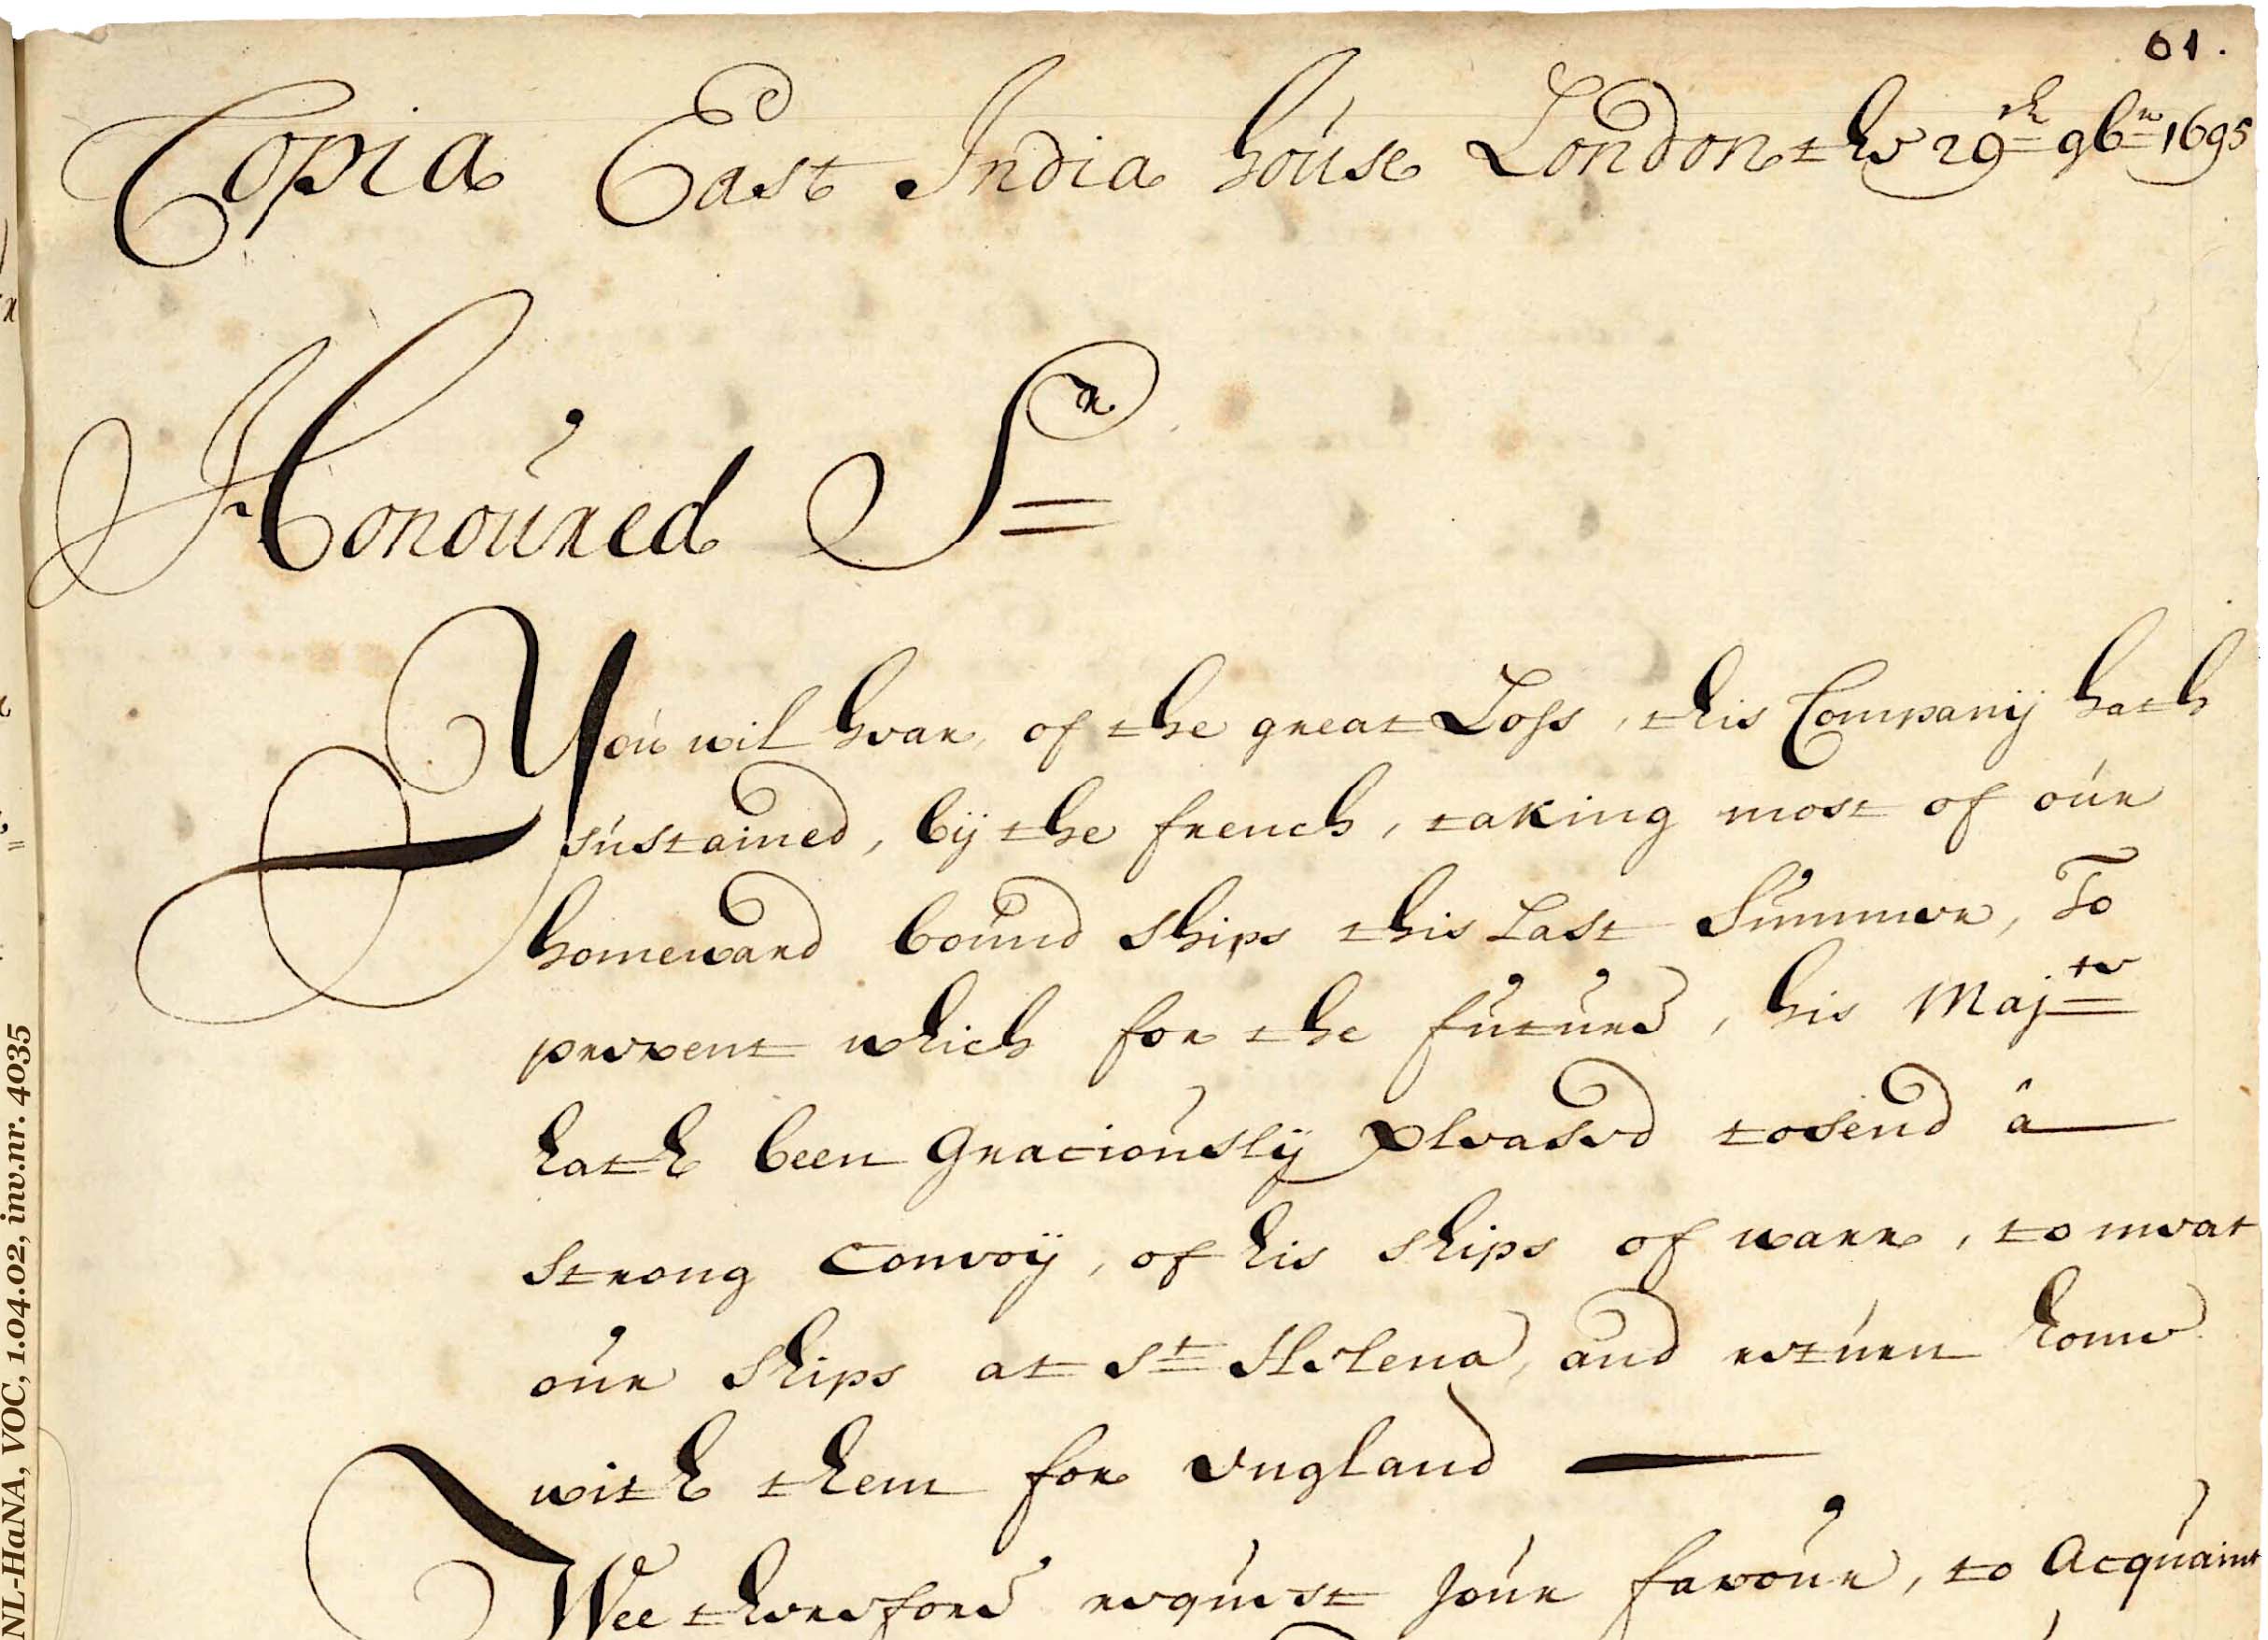 61.
Copia East India house London the 29th 9ber 1695
Honoured Sr
You wil hear, of the great Loss, this Companij hath
sustained, bij the french, taking most of our
homeward bound ships this Last Summer, To
prevent which for the future, his Majtie
hath been Graciouslij pleased to send â
strong Convoij, of his ships of warr, to meat
our ships at St Helena, and return home
with them for England
Wee therefore request Jour favour, to Acquaint
NL-HaNA, VOC, 1.04.02, inv.nr. 4035